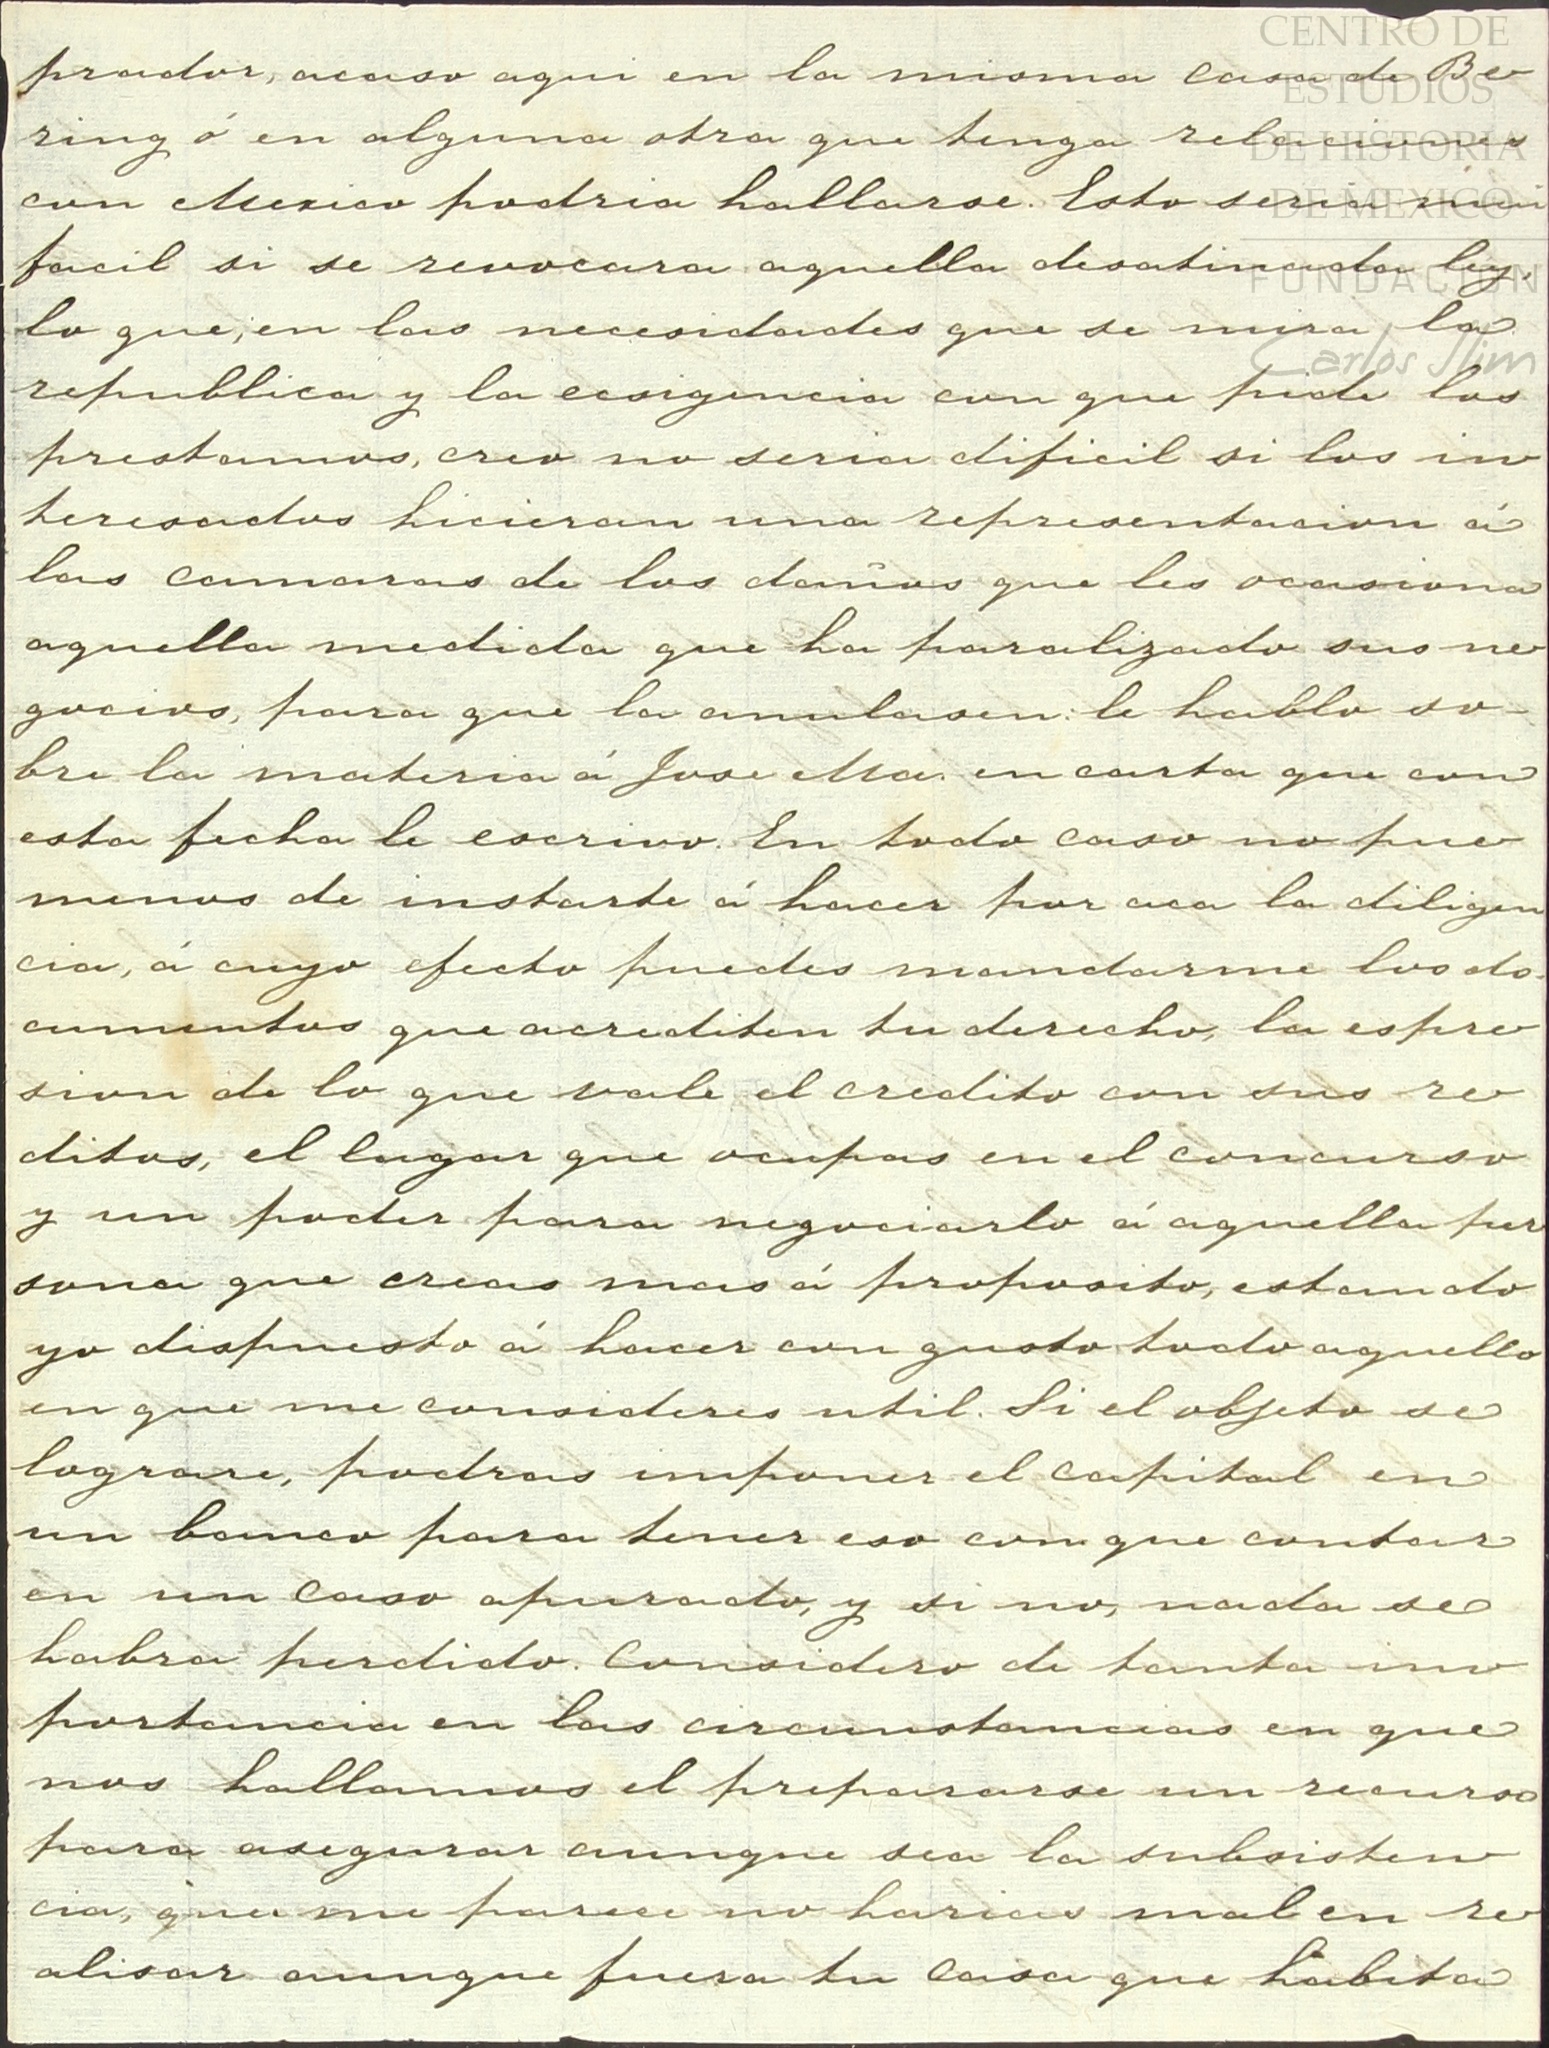 CENTRO DE
ESTUDIOS
DE HISTORIA
DE MEXICO
FUNDACIÓN
Carlos Slim
prador, acaso aqui en la misma casa de Be
ring ó en alguna otra que tenga relaciones
con Mexico podria hallarse. Esto seria mui
facil si se revocara aquella desatinada ley,
lo que, en las necesidades que se mira la
republica y la ecsigencia con que pide los
prestamos, creo no seria dificil si los in
teresados hicieran una representacion á
las camaras de los daños que les ocasiona
aquella medida que ha paralizado sus ne
gocios, para que la anulasen: le hablo so-
bre la materia á Jose Ma. en carta que con
esta fecha le escrivo. En todo caso no pue
menos de instarte á hacer por aca la diligen
cia, á cuyo efecto puedes mandarme los do-
cumentos que acrediten tu derecho, la espre
sion de lo que vale el credito con sus re
ditos, el lugar que ocupas en el concurso
y un poder para negociarlo á aquella per
sona que creas mas á proposito, estando
yo dispuesto á hacer con gusto todo aquello
en que me consideres util. Si el objeto se
lograre, podras imponer el capital en
un banco para tener eso con que contar
en un caso apurado, y si no, nada se
habra perdido. Considero de tanta im
portancia en las circunstancias en que
nos hallamos el prepararse un recurso
para asegurar aunque sea la subsisten
cia, que me parece no harias mal en re
alisar aunque fuera tu casa que habita